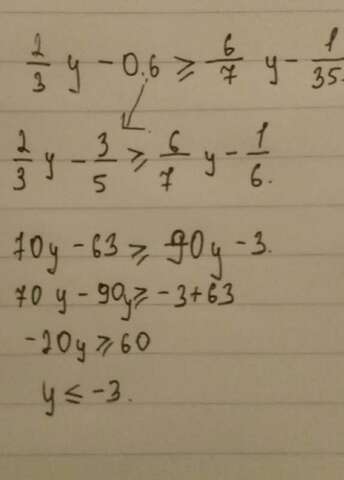 2/3 y - 0.6 ≥ 6/7 y - 1/35
2/3 y - 3/5 ≥ 6/7 y - 1/6.
70y - 63 ≥ 90y - 3.
70y - 90y ≥ -3+63
-20y ≥ 60
y ≤ -3.